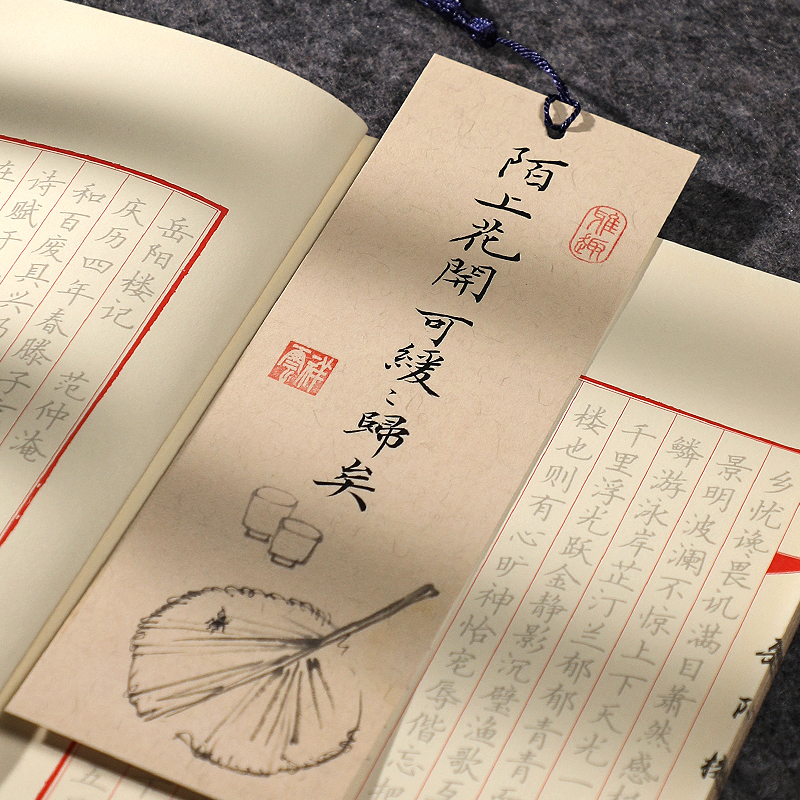 陌上花開可緩〻歸矣
雅趣
岳阳楼记 范仲淹
庆历四年春滕子
和百废具兴乃
诗赋于
在
乡忧谗畏讥满目萧然感极
景明波澜不惊上下天光一
鳞游泳岸芷汀兰郁郁青青而
千里浮光跃金静影沉璧渔歌互
楼也则有心旷神怡宠辱偕忘把